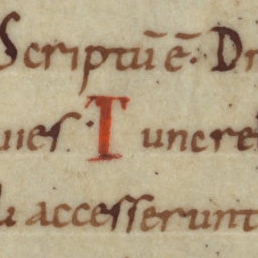 Scriptū ē· D
uies· T uncre
accesserunt